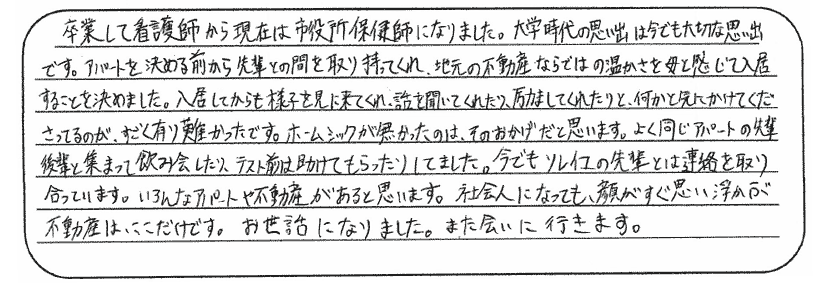 卒業して看護師から現在は市役所保健師になりました。大学時代の思い出は今でも大切な思い出
です。アパートを決める前から先輩との間を取り持ってくれ、地元の不動産ならではの温かさを母と感じて入居
することを決めました。入居してからも様子を見に来てくれ、話を聞いてくれたり、励ましてくれたりと、何かと気にかけてくだ
さってるのが、すごく有り難かったです。ホームシックが無かったのは、そのおかげだと思います。よく同じアパートの先輩
後輩と集まって飲み会したり、テスト前は助けてもらったりしてました。今でもソレイユの先輩とは連絡を取り
合っています。いろんなアパートや不動産があると思います。社会人になっても、顔がすぐ思い浮かぶ
不動産は、ここだけです。お世話になりました。また会いに行きます。